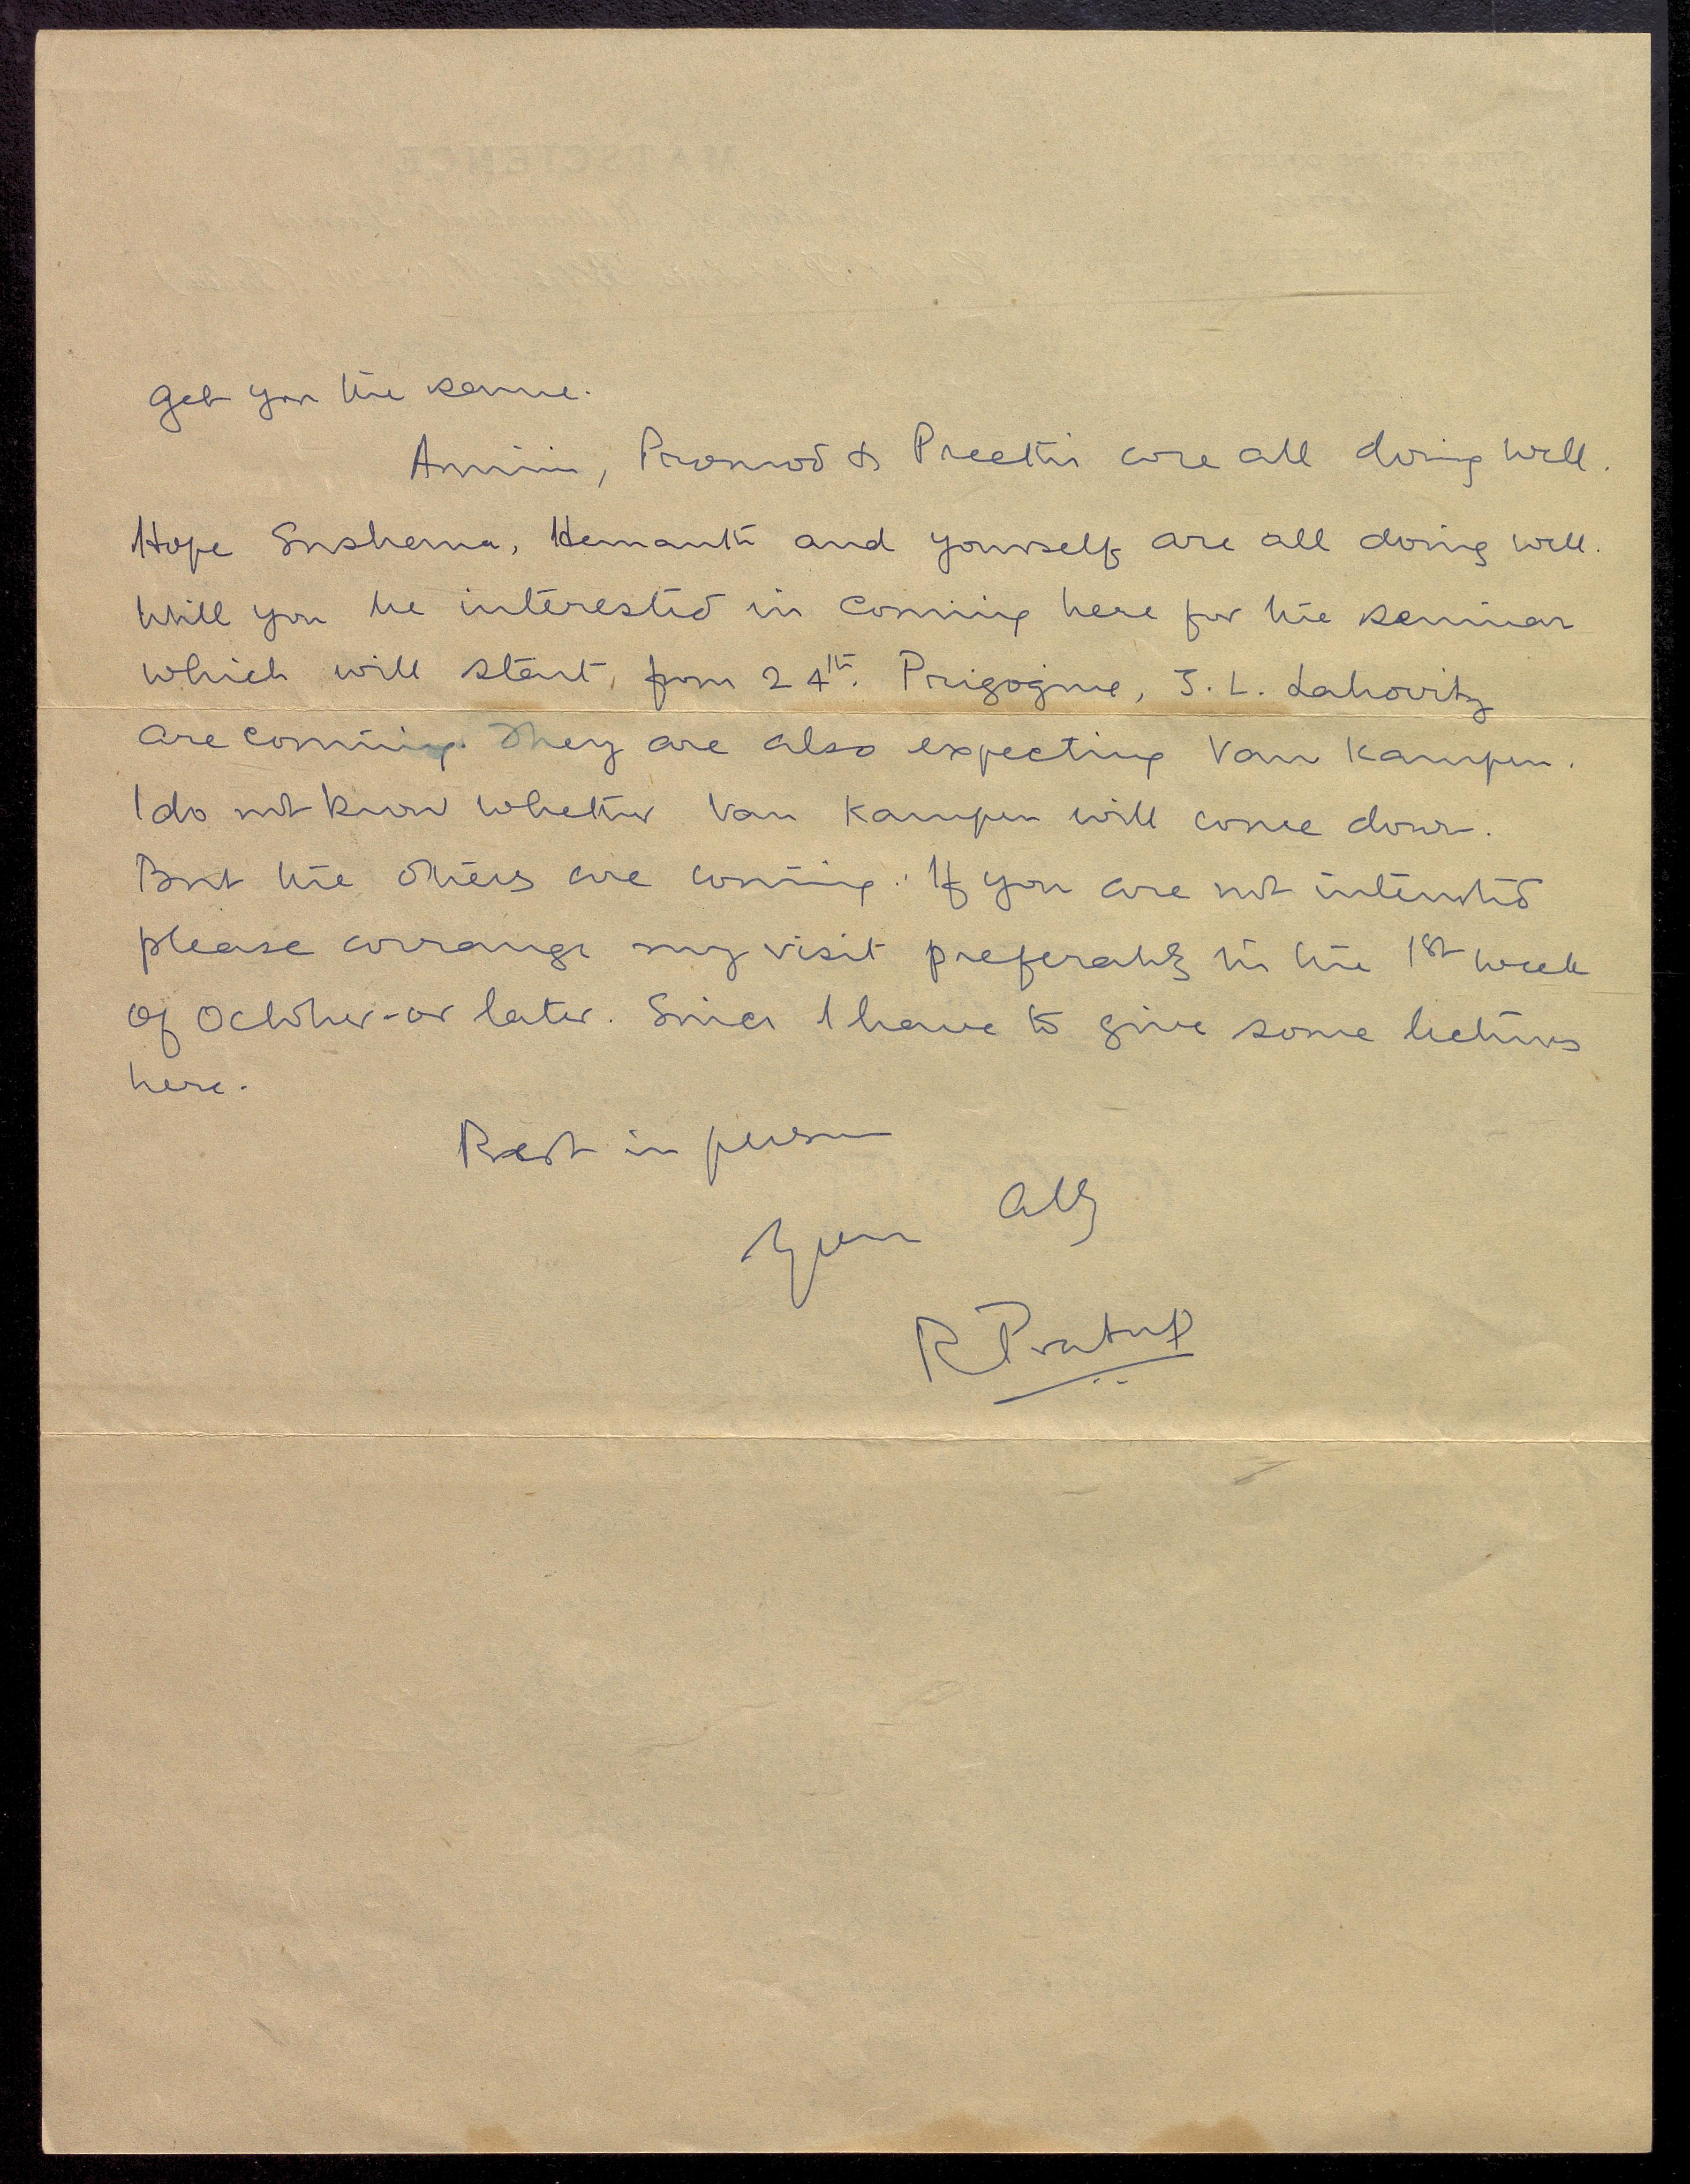 get you the same.
Ammini, Pramod & Preethi are all doing well.
Hope Sushema, Hemanth and yourself are all doing well.
Will you be interested in coming here for the seminar
which will start from 24th. Prigogine, J. L. Lebovitz
are coming. They are also expecting Van Kampen.
I do not know whether Van Kampen will come down.
But the others are coming. If you are not interested
please arrange my visit preferably in the 1st week
of October or later. Since I have to give some lectures
here.
Rest in person
Yours affly
R Pratap